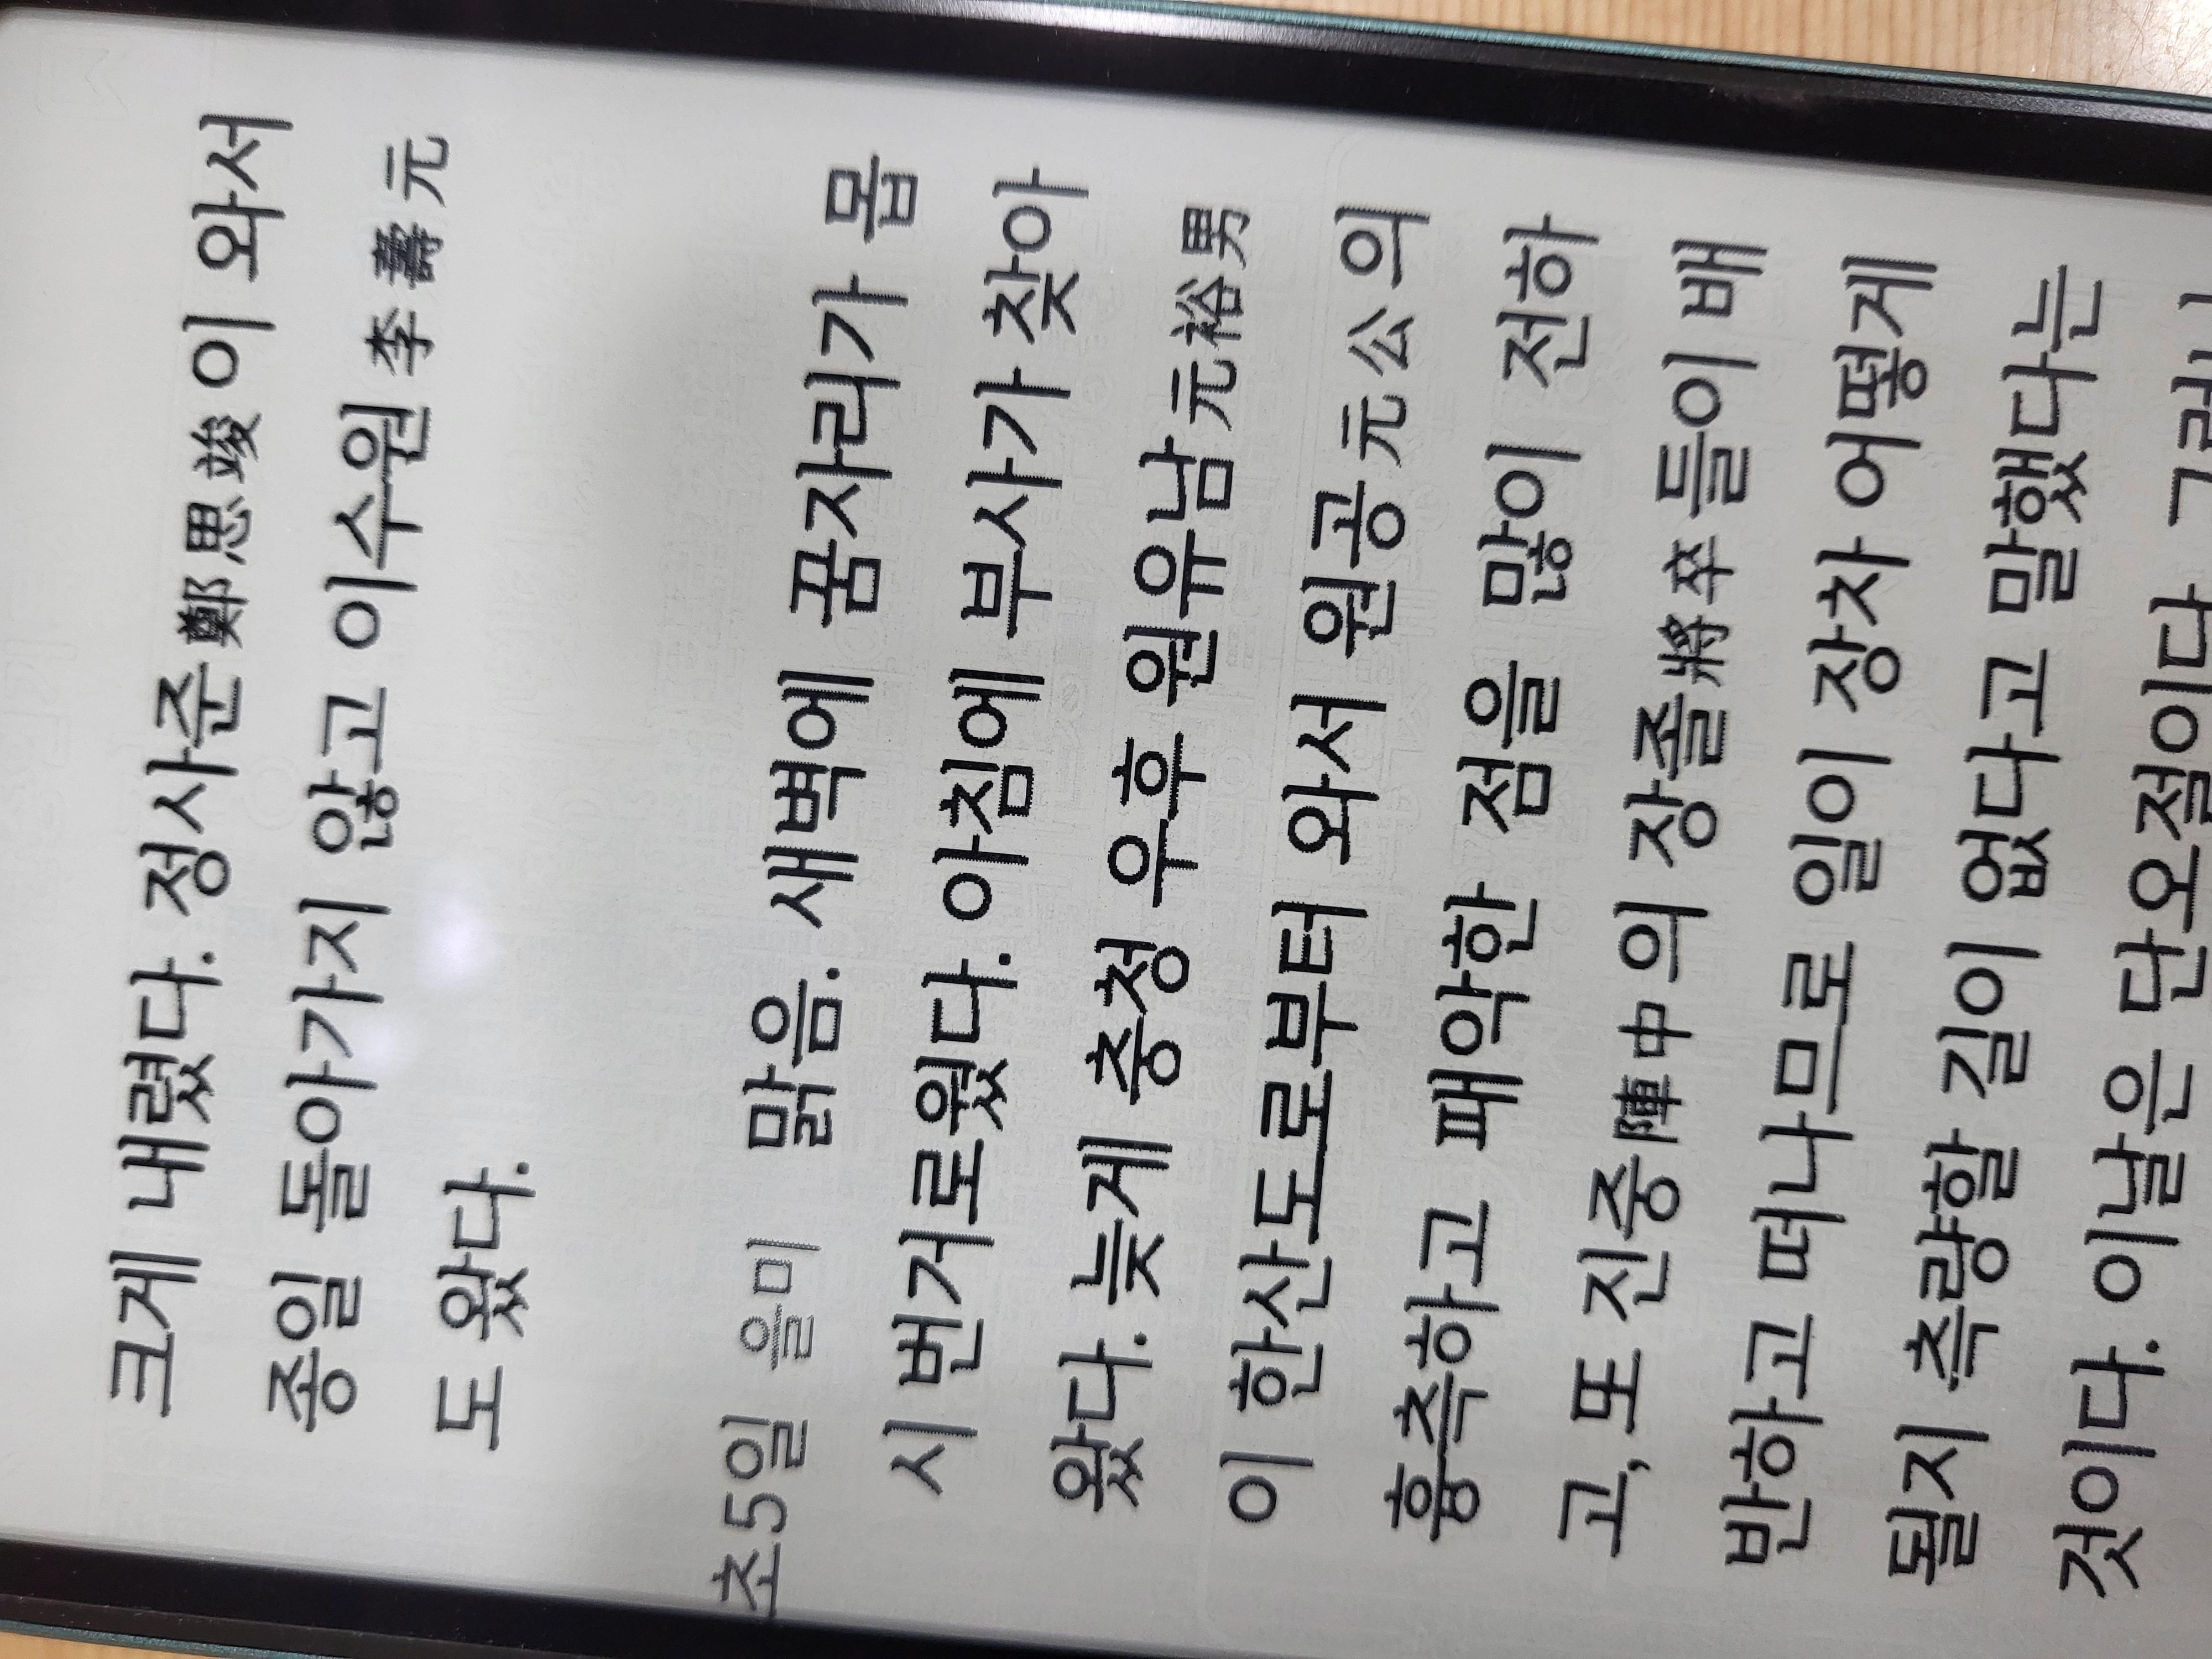 크게 내렸다. 정사준鄭思竣이 와서
종일 돌아가지 않고 이수원李壽元
도 왔다.
초5일 을미 맑음. 새벽에 꿈자리가 몹
시 번거로웠다. 아침에 부사가 찾아
왔다. 늦게 충청 우후 원유남元裕男
이 한산도로부터 와서 원공元公의
흉측하고 패악한 점을 많이 전하
고, 또 진중陣中의 장졸將卒들이 배
반하고 떠나므로 일이 장차 어떻게
될지 측량할 길이 없다고 말했다는
것이다. 이날은 단오절이다